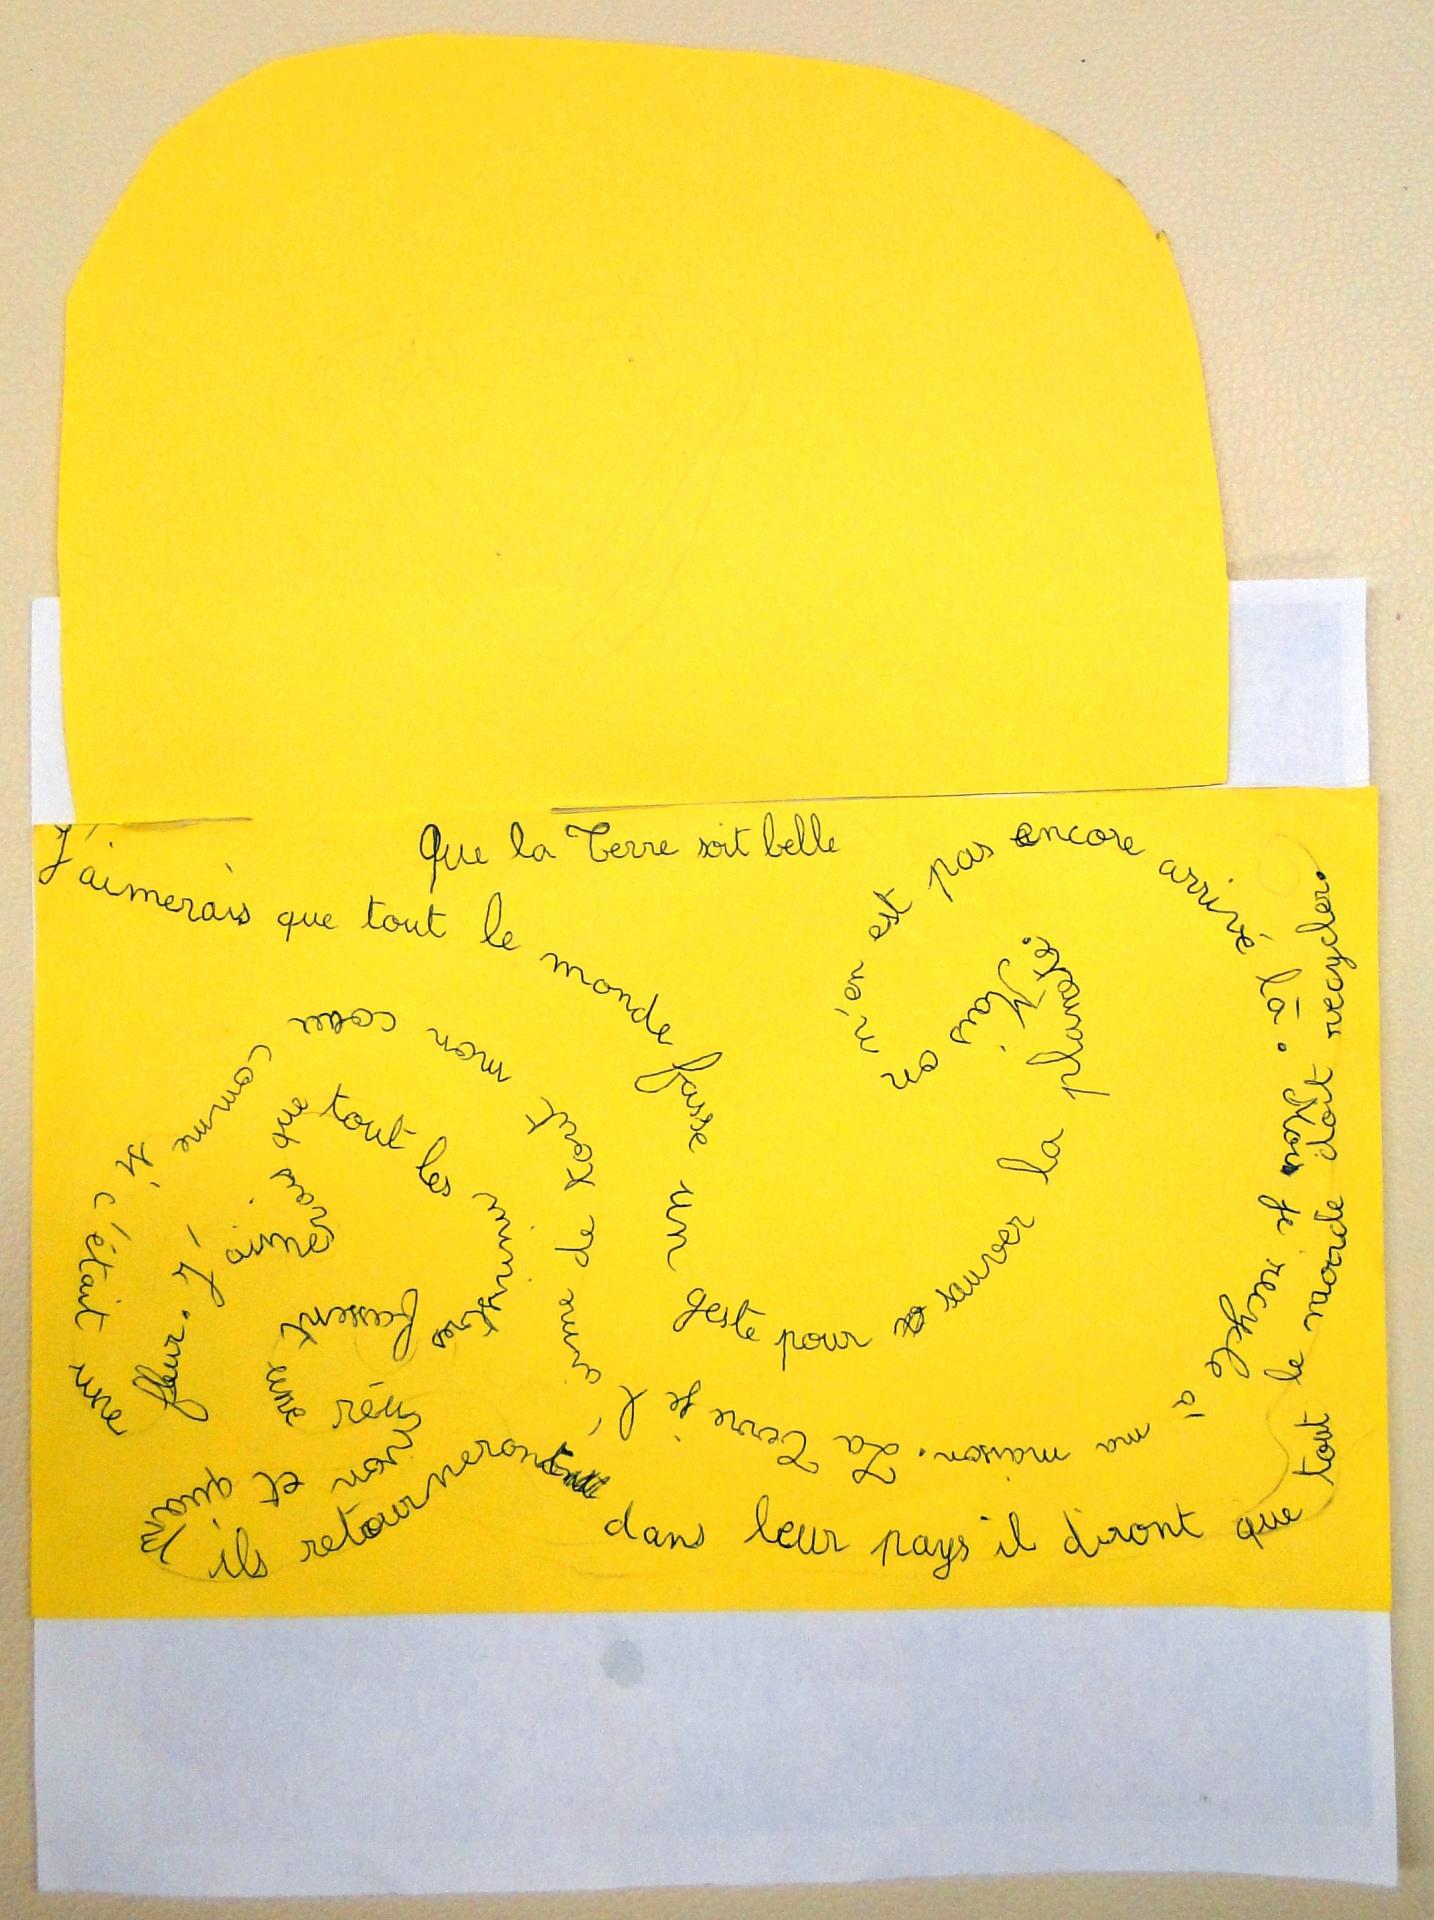 Que la Terre soit belle
J'aimerais que tout le monde fasse un geste pour sauver la planète. Mais on n'en est pas encore arrivé là. Moi je recycle a' ma maison. La Terre je l'aime de tout mon coeur comme si c'était une fleur. J'aimerais que tout les ministres fassent une réunion et quand ils retourneront dans leur pays il diront que tout le monde doit recycler.